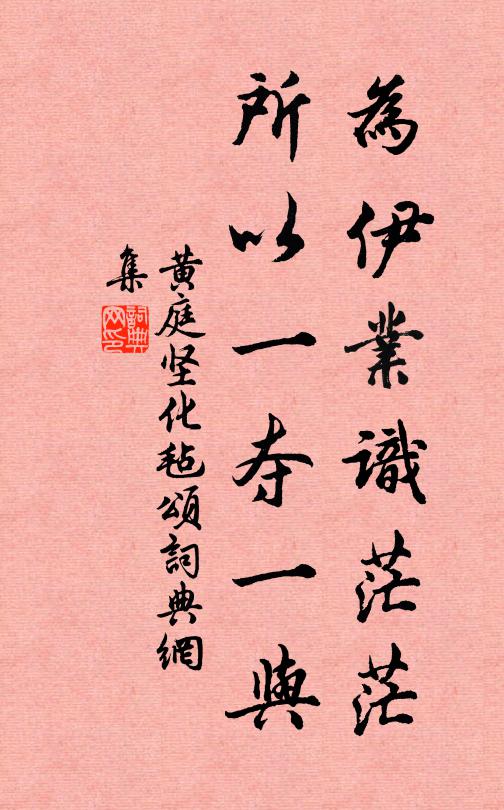 為伊業識茫茫
所以一夺一與
黄庭坚化毡頌詞典網
集
詞典
网印